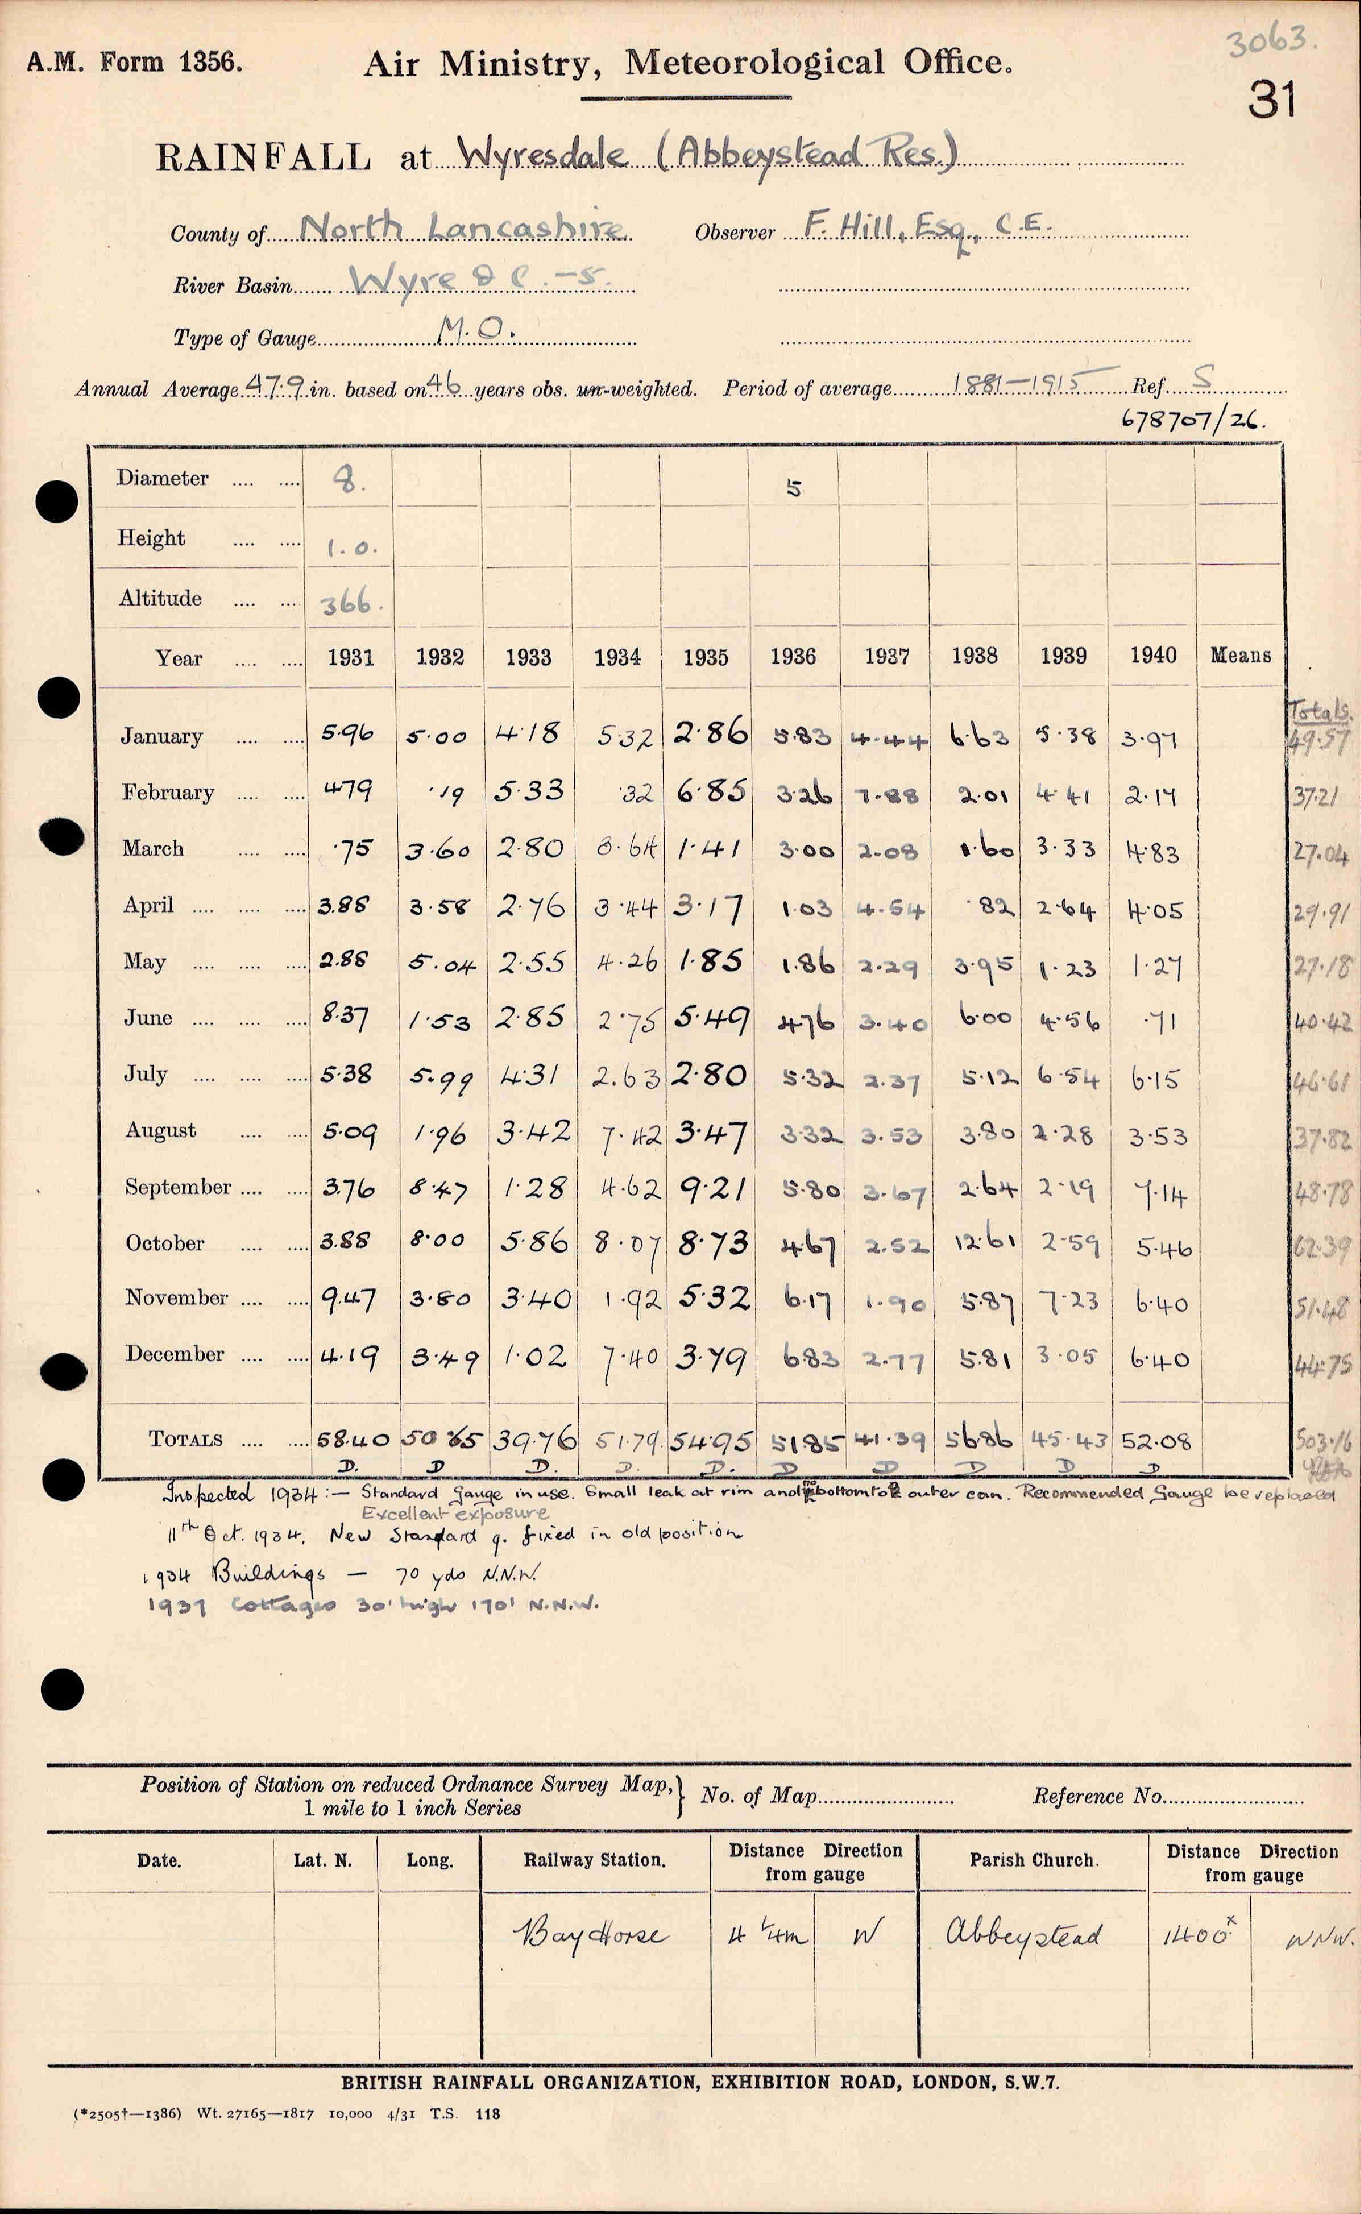 3063.
A.M. Form 1356. Air Ministry, Meteorological Office.
31
RAINFALL at Wyresdale (Abbeystead Res.)
County of North Lancashire Observer F. Hill, Esq., C.E.
River Basin Wyre & C. -5.
Type of Gauge M.O.
Annual Average 47.9 in. based on 46 years obs. un-weighted. Period of average 1881-1915 Ref. S
678707/26.
Diameter 8. 5
Height 1.0.
Altitude 366.
Year 1931 1932 1933 1934 1935 1936 1937 1938 1939 1940 Means
Totals.
January 5.96 5.00 4.18 5.32 2.86 5.83 4.44 6.63 5.38 3.97 49.57
February 4.79 .19 5.33 .32 6.85 3.26 7.88 2.01 4.41 2.17 37.21
March .75 3.60 2.80 3.64 1.41 3.00 2.08 1.60 3.33 4.83 27.04
April 3.88 3.58 2.76 3.44 3.17 1.03 4.54 .82 2.64 4.05 29.91
May 2.88 5.04 2.55 4.26 1.85 1.86 2.29 3.95 1.23 1.27 27.18
June 8.37 1.53 2.85 2.75 5.49 4.76 3.40 6.00 4.56 .71 40.42
July 5.38 5.99 4.31 2.63 2.80 5.32 2.37 5.12 6.54 6.15 46.61
August 5.09 1.96 3.42 7.42 3.47 3.32 3.53 3.80 2.28 3.53 37.82
September 3.76 8.47 1.28 4.62 9.21 5.80 3.67 2.64 2.19 7.14 48.78
October 3.88 8.00 5.86 8.07 8.73 4.67 2.52 12.61 2.59 5.46 62.39
November 9.47 3.80 3.40 1.92 5.32 6.17 1.90 5.87 7.23 6.40 51.48
December 4.19 3.49 1.02 7.40 3.79 6.83 2.77 5.81 3.05 6.40 44.75
TOTALS 58.40 50.65 39.76 51.79 54.95 51.85 41.39 56.86 45.43 52.08 503.16
D. D D. D. D. D D D D D
Inspected 1934:- Standard gauge in use. Small leak at rim and no bottom to outer can. Recommended gauge be replaced
Excellent exposure
11th Oct. 1934. New Standard g. fixed in old position
1934 Buildings - 70 yds N.N.W.
1937 Cottages 30' high 170' N.N.W.
Position of Station on reduced Ordnance Survey Map, } No. of Map Reference No.
1 mile to 1 inch Series
Date. Lat. N. Long. Railway Station. Distance Direction from gauge Parish Church. Distance Direction from gauge
Bay Horse 4 1/4m W Abbeystead 1400x WNW.
BRITISH RAINFALL ORGANIZATION, EXHIBITION ROAD, LONDON, S.W.7.
(*2505†—1386) Wt. 27165—1817 10,000 4/31 T.S. 118